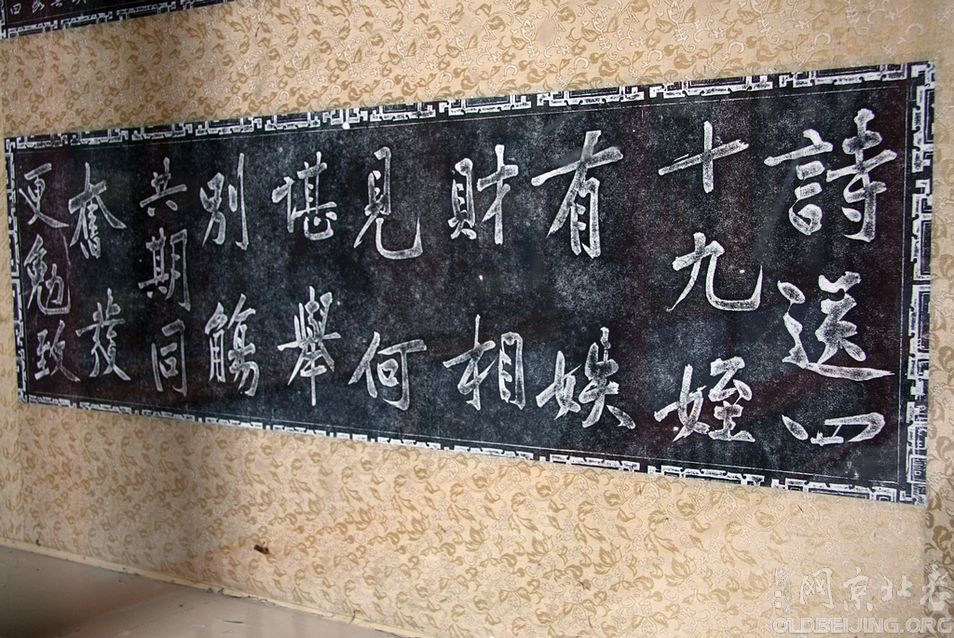 詩送四
十九姪
有娭
財相
見何
堪舉
別觴
共期同
奮發
更勉致
老北京网
OLDBEIJING.ORG